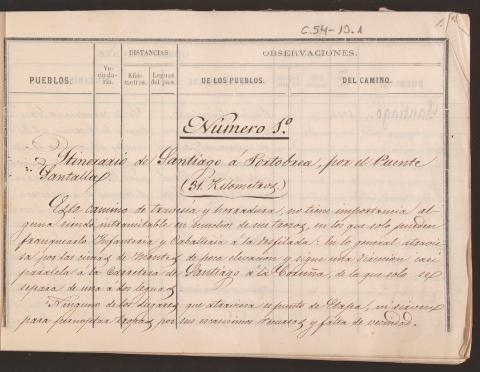 C.54-10.1
PUEBLOS.
Ve-
cinda-
rio.
DISTANCIAS.
Kiló-
metros.
Leguas
del país.
OBSERVACIONES.
DE LOS PUEBLOS.
DEL CAMINO.
Número 1º
Itinerario de Santiago á Portobrea, por el Puente
Santalla.
(51 Kilometros)
Este camino de travesia y herradura, no tiene importancia al-
guna siendo intransitable en muchos de sus trozos, en los que solo pueden
franquearlo Infanteria y Caballeria á la desfilada: En lo general atravie-
sa por las cimas de Montes de poca elevacion y sigue una direccion casi
paralela á la Carretera de Santiago á la Coruña, de la que solo se
separa de una á dos leguas.
Ninguno de los lugares que atraviesa es punto de Etapa, ni sirven
para pernoctar tropas, por sus escasisimos recursos y falta de vecindad.